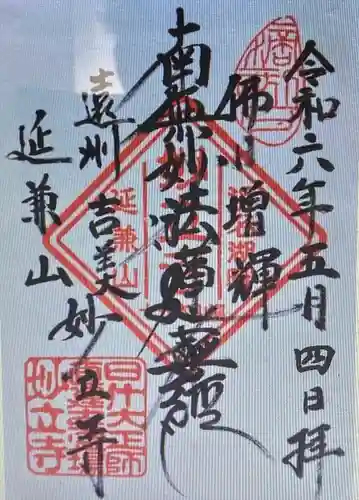 令和六年五月四日拝
佛日増輝
南無妙法蓮華経
遠州 吉美 妙立寺
延兼山
延兼山
妙立寺